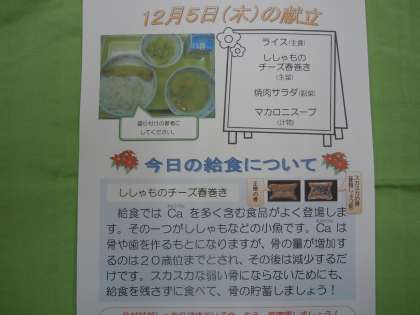 12月5日(木)の献立
ライス(主食)
ししゃもの
チーズ春巻き
(主菜)
焼肉サラダ(副菜)
マカロニスープ
(汁物)
盛り付けの参考に
してください。
今日の給食について
ししゃものチーズ春巻き
正常の骨
給食では Ca を多く含む食品がよく登場しま
す。そのつがししゃもなどの小魚です。Ca は
骨や歯を作るもとになりますが、骨の量が増加す
るのは20歳位までとされ、その後は減少するだ
けです。スカスカな弱い骨にならないためにも、
給食を残さずに食べて、骨の貯蓄しましょう！